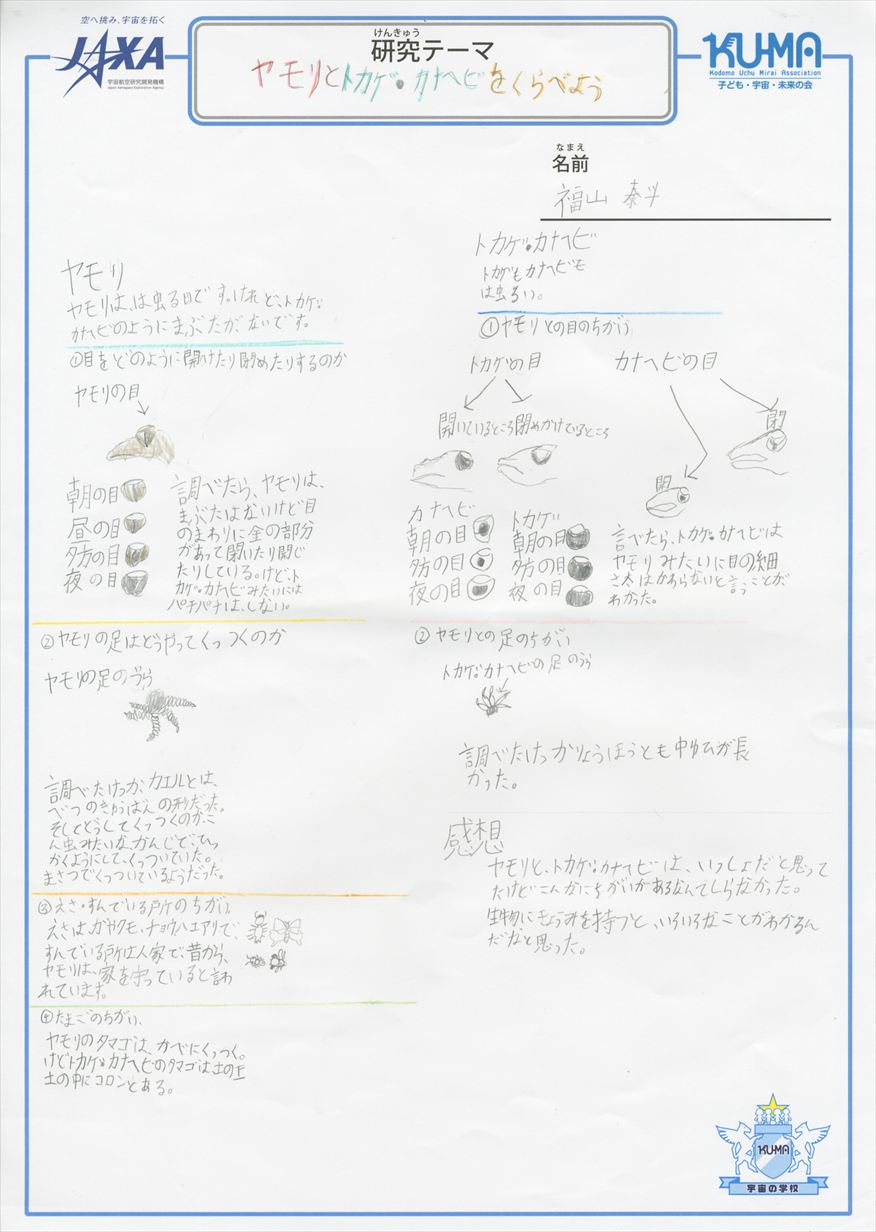 空へ挑み、宇宙を拓く
JAXA
宇宙航空研究開発機構
Japan Aerospace Exploration Agency
けんきゅう
研究テーマ
ヤモリとトカゲ・カナヘビをくらべよう
KU-MA
Kodomo Uchu Mirai Association
子ども・宇宙・未来の会
なまえ
名前
福山 泰斗
ヤモリ
ヤモリは、は虫る目です。けれど、トカゲ・
カナヘビのようにまぶたがないです。
①目をどのように開けたり閉めたりするのか
ヤモリの目
朝の目
昼の目
夕方の目
夜の目
調べたら、ヤモリは、
まぶたはないけど目
のまわりに金の部分
があって閉いたり開じ
たりしている。けど、ト
カゲ・カナヘビみたいには
パチパチは、しない。
②ヤモリの足はどうやってくっつくのか
ヤモリの足のうら
調べたけっか、カエルとは、
べつのきゅうばんの形だった。
そしてどうしてくっつくのか、こ
ん虫みたいな、かんじで、ひっ
かくようにして、くっついていた。
まさつでくっついているようだった。
③えさ・すんでいる戸ケのちがい
えさは、ガヤクモ、チョウハエアリで、
すんでいる戸ケは人家で、昔から、
ヤモリは、家を守っていると言わ
れています。
④たまごのちがい、
ヤモリのタマゴは、かべにくっつく。
けどトカゲ・カナヘビのタマゴは土の王
土の中にコロンとある。
トカゲ・カナヘビ
トカゲもカナヘビも
は虫るい。
①ヤモリとの目のちがい
トカゲの目
カナヘビの目
開いているところ
閉めかけているところ
閉
開
カナヘビ
朝の目
夕方の目
夜の目
トカゲ
朝の目
夕方の目
夜の目
言べたら、トカゲ・カナヘビは
ヤモリみたいに目の細
さ太はかわらないと言うことが、
わかった。
②ヤモリとの足のちがい
トカゲ・カナヘビの足のうら
調べたけっかりょうほうとも中ゆびが長
かった。
感想
ヤモリと、トカゲ・カナヘビは、いっしょだと思って
たけどこんなにちがいがあるなんてしらなかった。
生物にきょうみを持つと、いろいろなことがわかるん
だなと思った。
KU-MA
宇宙の学校